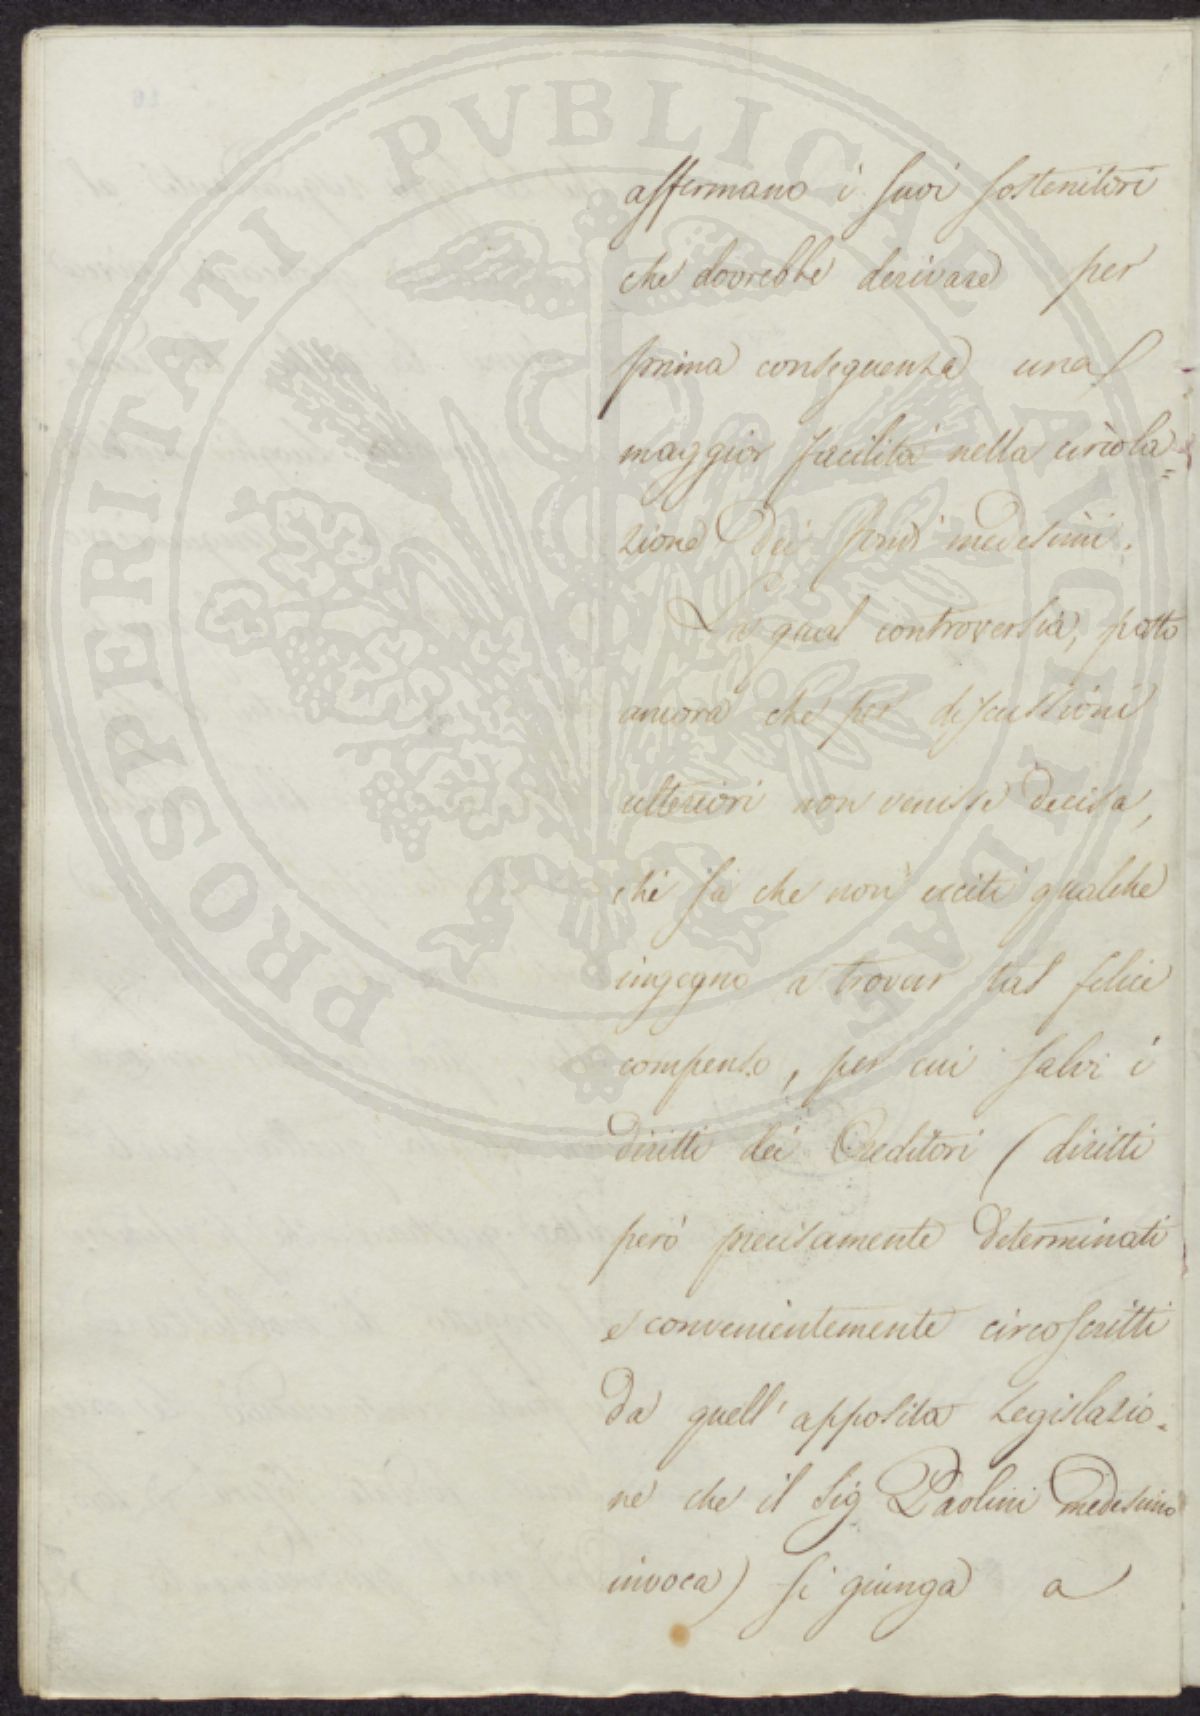 PROSPERITATI PVBLICAE AVGENDAE
affermano i suoi sostenitori
che dovrebbe derivare per
prima conseguenza una
maggior facilità nella circola=
zione dei fondi medesimi.
La qual controversia, posto
ancora che per discussioni
ulteriori non venisse decisa,
chi sa che non ecciti qualche
ingegno a trovar tal felice
compenso, per cui salvi i
diritti dei Creditori (diritti
però precisamente determinati
e convenientemente circoscritti
da quell' apposita Legislazio-
ne che il Sig Paolini medesimo
invoca) si giunga a